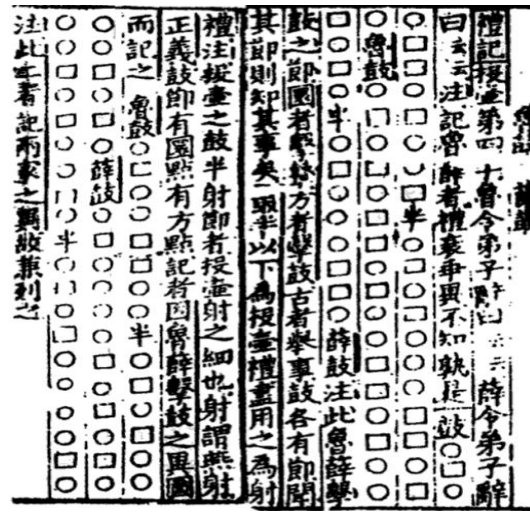 禮記投壺第四十魯令弟子辭曰云云薛令弟子辭
曰云云注記魯薛者禮衰乖異不知孰是 鼓
半
魯鼓
半 薛鼓注此魯薛擊
鼓之節圜者擊鼙方者擊鼓古者舉事鼓各有節聞
其節則知其事矣 取半以下為投壺禮盡用之為射
禮注投壺之鼓半射節者投壺射之細也射謂燕射
正義鼓節有圜點有方點記者因魯薛擊鼓之異圖
而記之 魯鼓 半
薛鼓
半
注此二者記兩家之異故兼列之